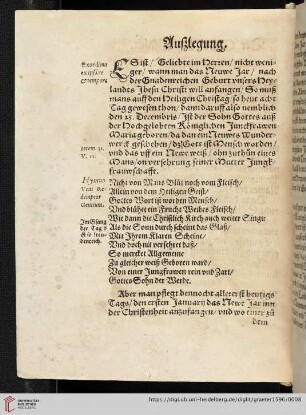 Außlegung.
Exordium
ex epistre
ex tempore
ES ist / Geliebte im Herren / nicht weni-
ger / wann man das Neuwe Jar / nach
der Gnadenreichen Geburt vnsers Hey-
landes Jhesu Christi will anfangen / So muß
mans auff den Heiligen Christag / so heut acht
Tag gewesen thon / dann darauff also nemblich
den 25. Decembris / Jst der Sohn Gottes auß
der Hochgelobten Königlichen Junckfrauwen
Maria geboren / da dan ein Neuwes Wunder-
werck geschehen / dz Gott ist Mensch worden /
und das vff ein Neuwe weiß / ohn zuthůn eines
Mans / on versehrung seiner Mutter Jungk-
frauwschafft.
Jerem. 31.
V. 22.
Hymnus
Veni Re-
demptor
Gentium.
Im Gsang
Der Tag d
ist so freu-
denreich.
Nicht von Mans Blůt noch vom Fleisch /
Allein von dem Heiligen Geist /
Gottes Wort ist worden Mensch /
Vnd blühet ein Frucht Weibes Fleisch /
Wie dann die Christlich Kirch auch weiter Singt
Als die Sonn durchscheint das Glaß /
Mit Jhrem Klaren Scheine /
Vnd doch nit versehret daß /
So mercket Allgemeine
Zu gleicher weiß Geboren ward /
Von einer Jungfrawen rein vnd Zart /
Gottes Sohn der Werde.
Aber man pflegt dennocht allererst heutigs
Tags / den ersten Januarij das Neuwe Jar inn
der Christenheit anzufangen / vnd wo einer zů
dem
https://digi.ub.uni-heidelberg.de/diglit/graeter1596/0008
UNIVERSITÄTS-
BIBLIOTHEK
HEIDELBERG